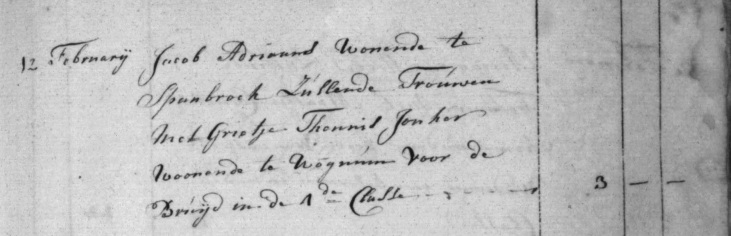 12 Februarij Jacob Adriaans Wonende te
Spanbroek Zúllende Troúwen
met Grietje Theunis Jonker
woonende te Wognúm voor de
Brúÿd in de 1de Classe - - - 3 — —